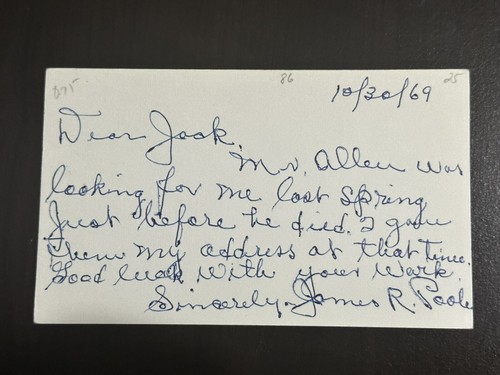 075 86 25
10/30/69
Dear Jack,
Mr. Allen was
looking for me last spring
just before he died. I gave
them my address at that time.
Good luck with your work.
Sincerely James R. Poole